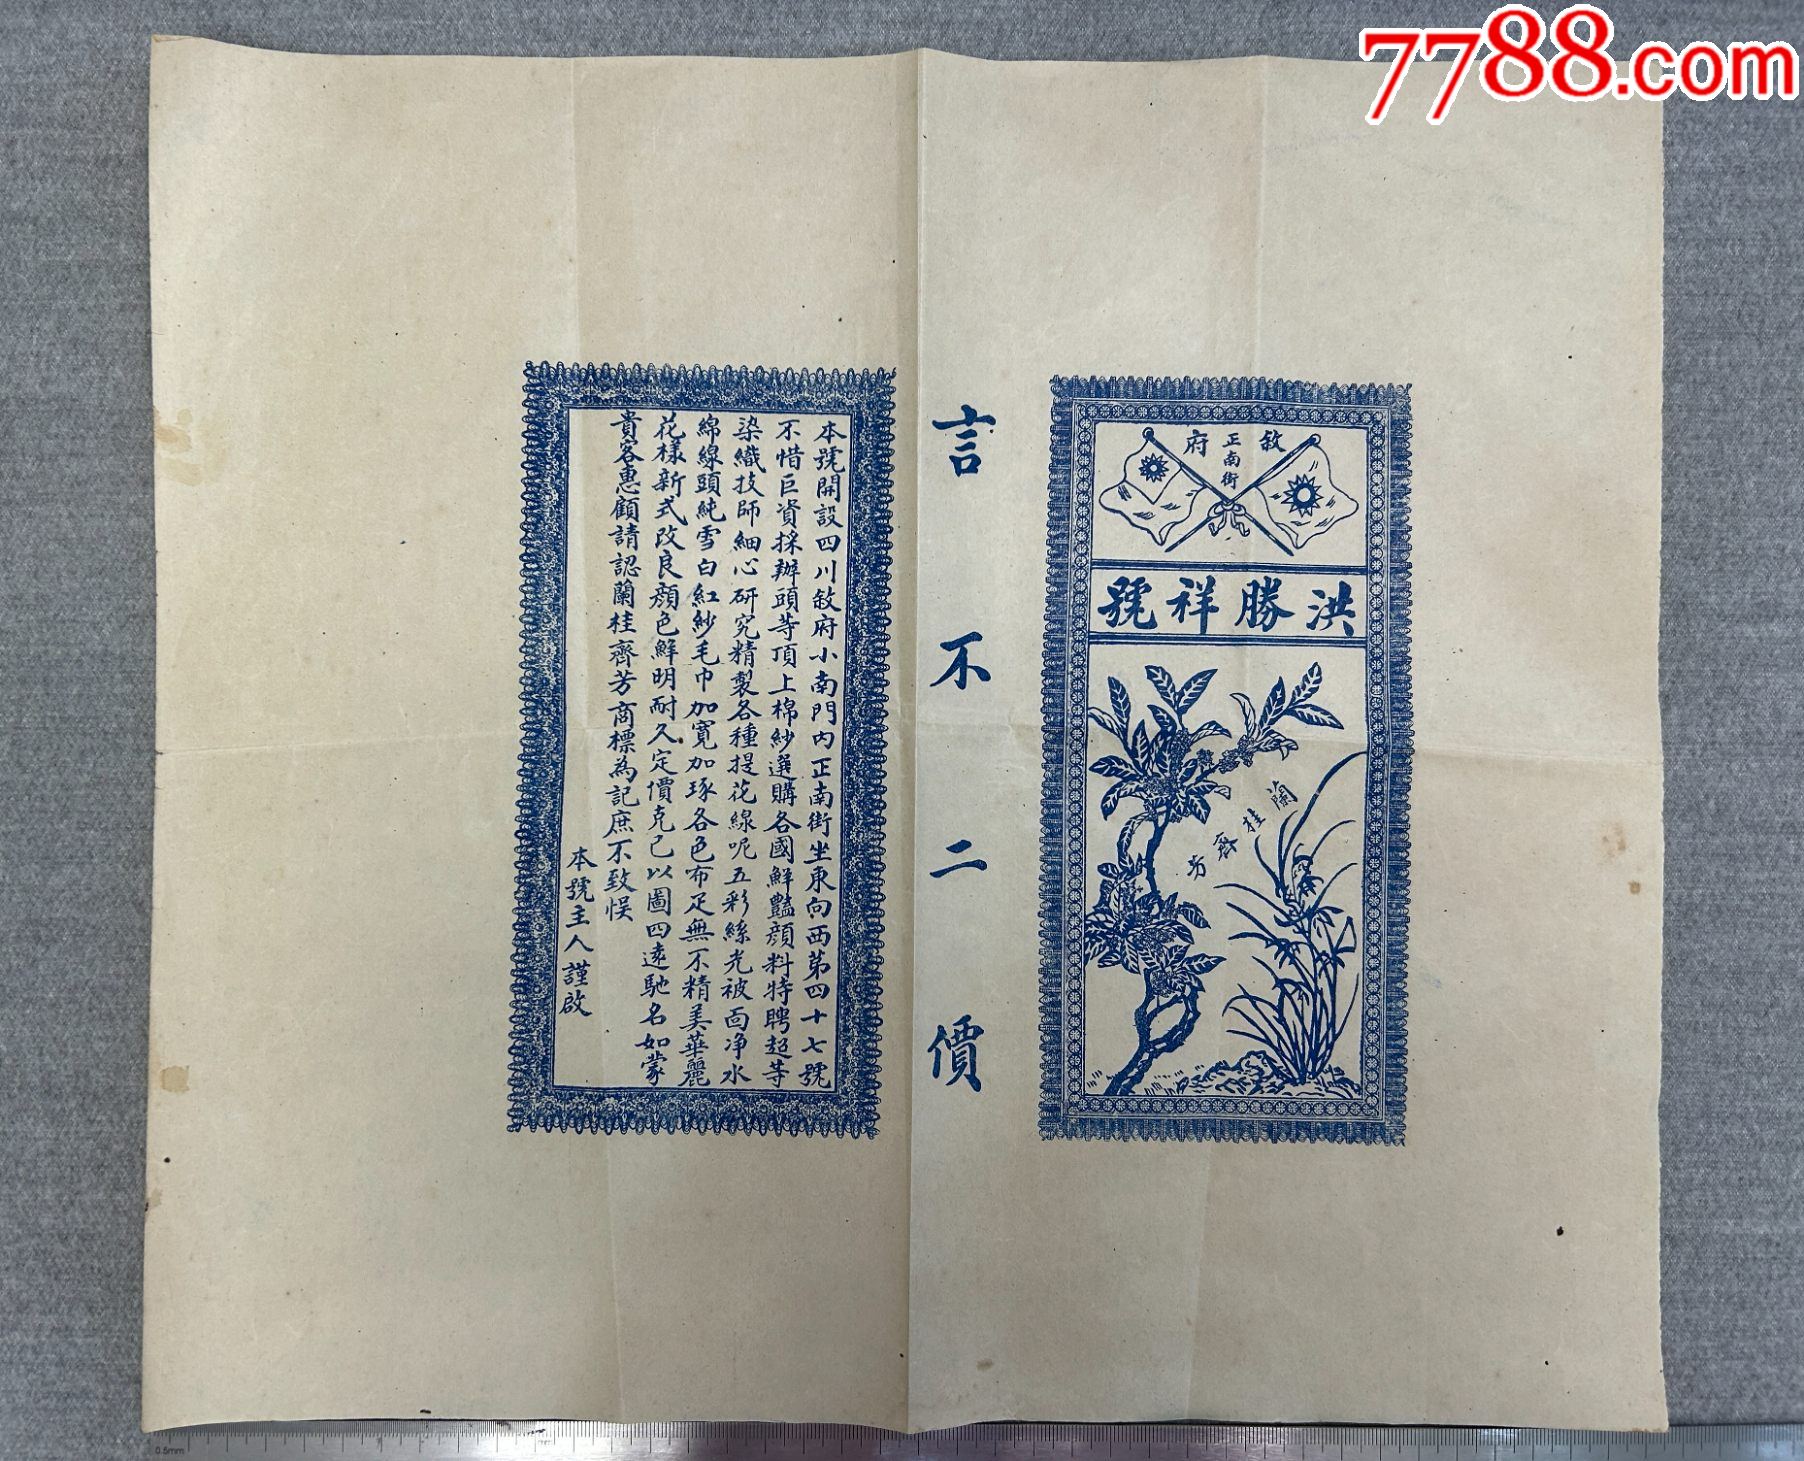 7788.com
敘府
正南街
洪勝祥號
蘭桂齊芳
言不二價
本號開設四川敘府小南門內正南街坐東向西第四十七號
不惜巨資採辦頭等頂上棉紗選購各國鮮豔顏料特聘超等
染織技師細心研究精製各種提花線呢五彩絲光被面净水
綿線頭純雪白紅紗毛巾加寬加琢各色布疋無不精美華麗
花樣新式改良顏色鮮明耐久定價克己以圖四遠馳名如蒙
貴客惠顧請認蘭桂齊芳商標為記庶不致悮
本號主人謹啟
0.5mm